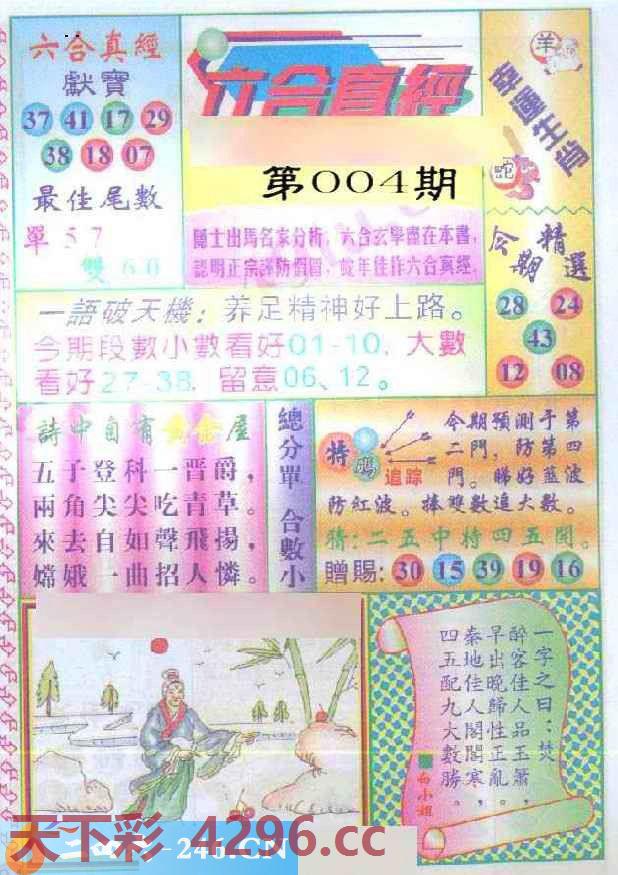 六合真經
獻寶
37 41 17 29
38 18 07
最佳尾數
單 5 7
雙 6 0
六合真經
第004期
隱士出馬名家分析，六合玄學盡在本書，
認明正宗謹防假冒，蛇年佳作六合真經，
羊
幸運生肖
蛇
今期精選
28 24
43
12 08
一語破天機：养足精神好上路。
今期段數小數看好01-10，大數
看好27-38，留意06、12。
詩中自有黃金屋
五子登科一晋爵，
兩角尖尖吃青草。
來去自如聲飛揚，
嫦娥一曲招人憐。
總分單 合數小
特
追踪
今期預測于第
二門，防第四
門。睇好藍波
防紅波。捧雙數追大數。
猜：二五中特四五開。
贈賜：30 15 39 19 16
一字之曰：焚
醉客佳人品玉簫，
早出晚歸性正亂。
秦地佳人閣閣寒，
四五配九大數勝。
白小姐
天下彩 4296.cc
246.CN